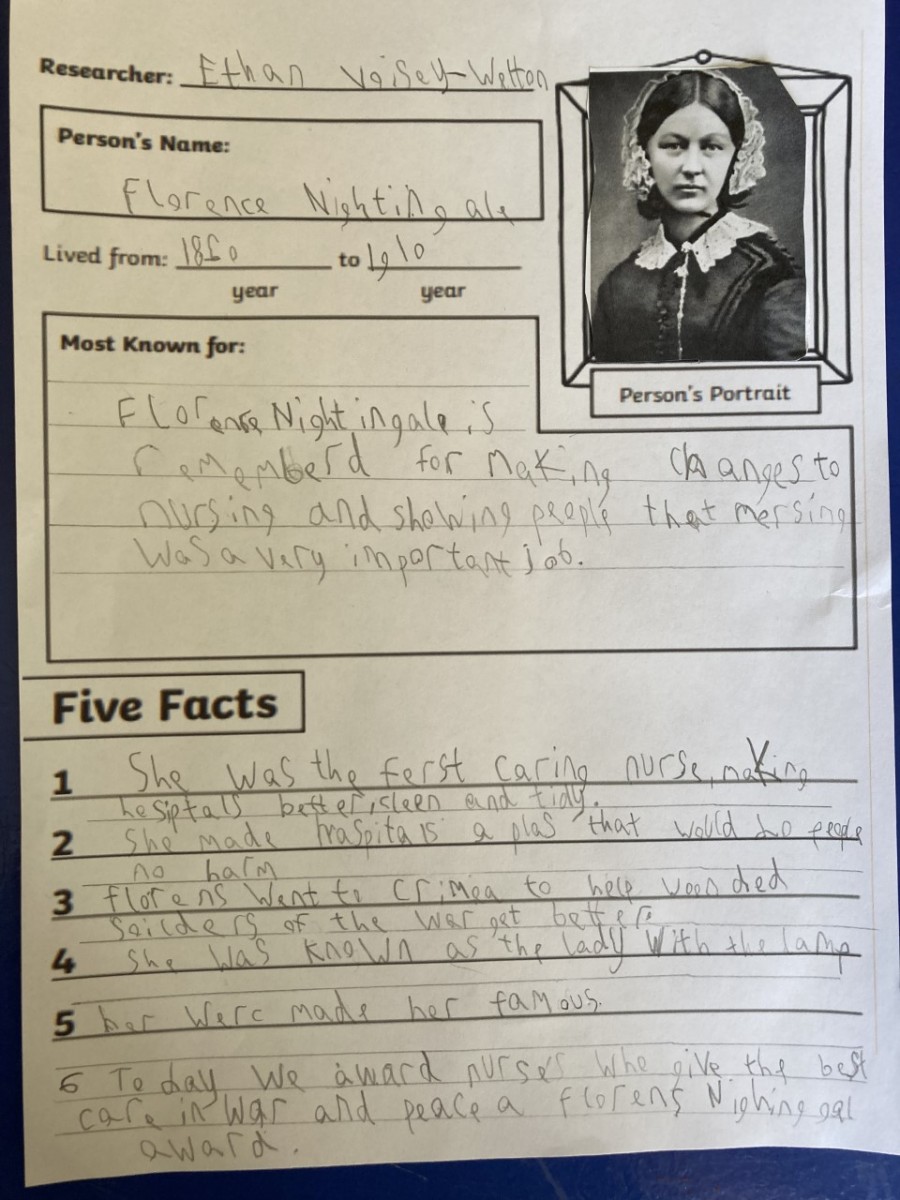 Researcher: Ethan Voisey-Welton
Person's Name:
Florence Nightingale
Lived from: 1820 to 1910
year year
Most Known for:
Person's Portrait
Florence Nightingale is
rememberd for making changes to
nursing and showing people that nersing
was a very important job.
Five Facts
1 She was the ferst caring nurse, making
hesiptals better, cleen and tidy.
2 She made haspitals a plas that would do people
no harm
3 florens went to Crimea to help woonded
soilders of the war get better.
4 she was known as the lady with the lamp
5 her werc made her famous.
6 To day we award nurses who give the best
care in war and peace a florens Nighinggal
award.